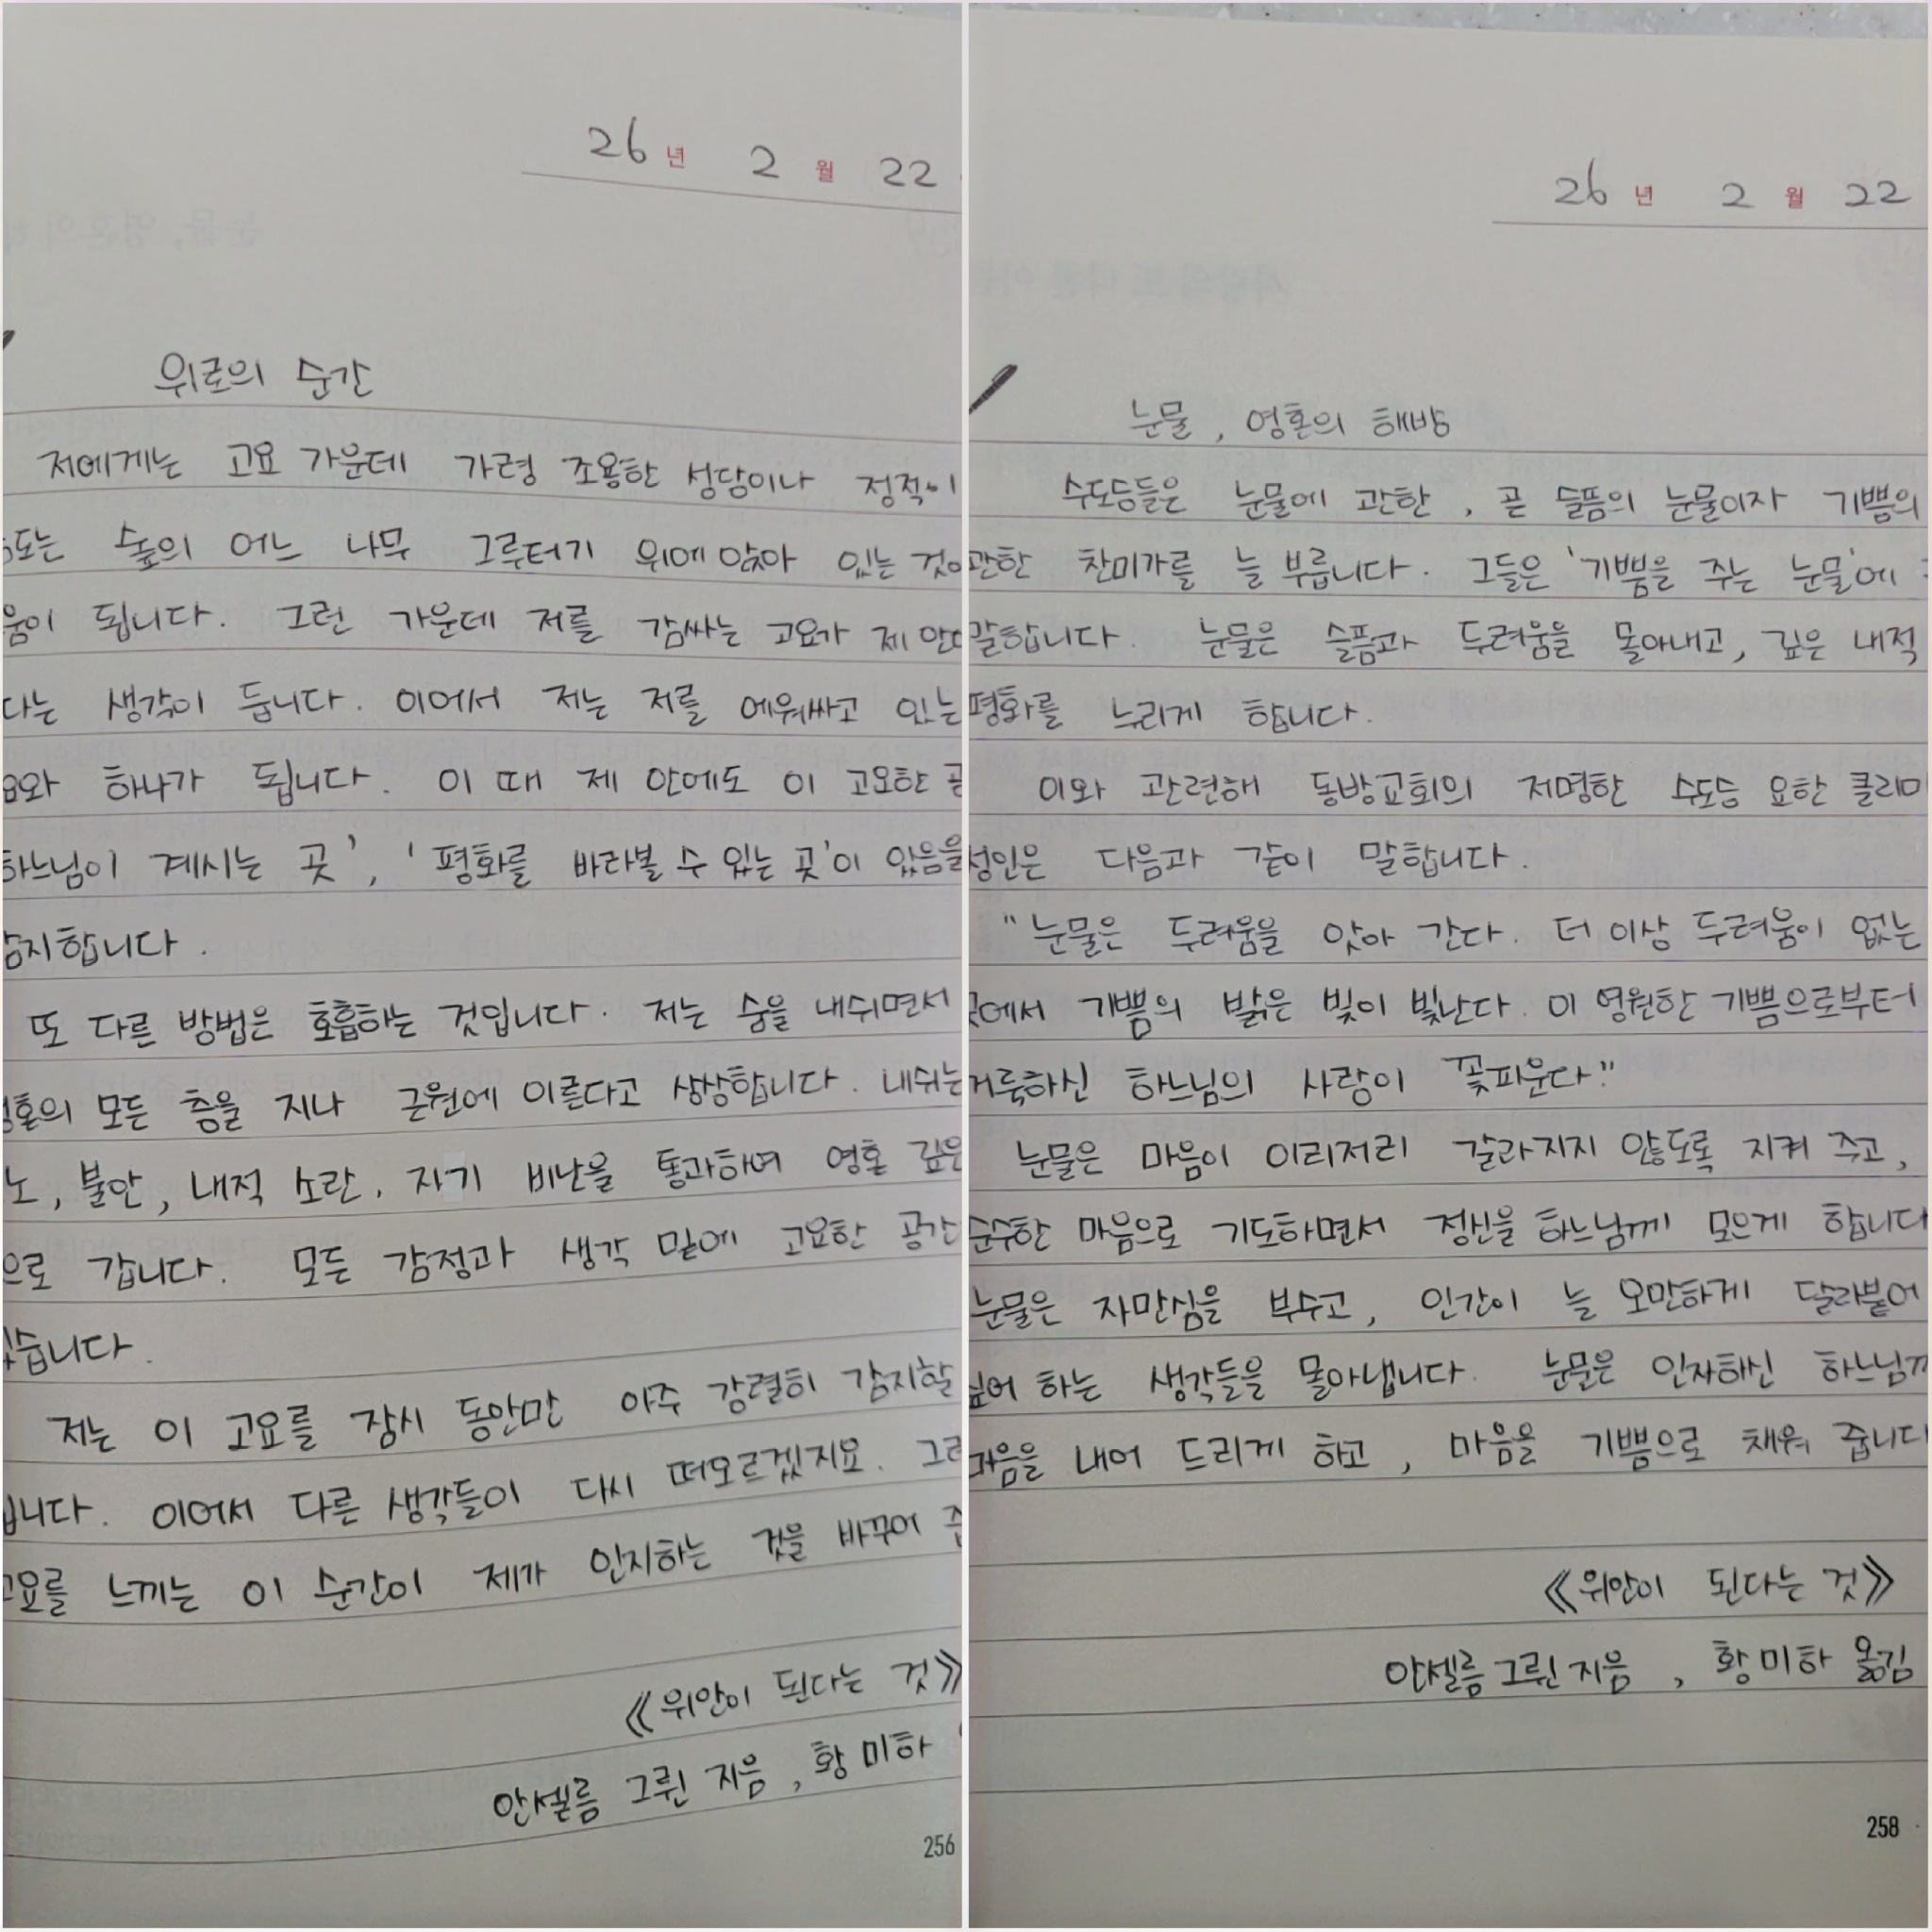 26년 2월 22
위로의 순간
저에게는 고요 가운데 가령 조용한 성당이나 정적이
도는 숲의 어느 나무 그루터기 위에 앉아 있는 것이
움이 됩니다. 그런 가운데 저를 감싸는 고요가 제 안
다는 생각이 듭니다. 이어서 저는 저를 에워싸고 있는
요와 하나가 됩니다. 이 때 제 안에도 이 고요한 공
하느님이 계시는 곳', '평화를 바라볼 수 있는 곳'이 있음을
감지합니다.
또 다른 방법은 호흡하는 것입니다. 저는 숨을 내쉬면서
혼의 모든 층을 지나 근원에 이른다고 상상합니다. 내쉬는
노, 불안, 내적 소란, 자기 비난을 통과하여 영혼 깊은
으로 갑니다. 모든 감정과 생각 밑에 고요한 공간
있습니다.
저는 이 고요를 잠시 동안만 아주 강렬히 감지할
니다. 이어서 다른 생각들이 다시 떠오르겠지요. 그러
고요를 느끼는 이 순간이 제가 인지하는 것을 바꾸어 줍
《위안이 된다는 것》
안셀름 그륀 지음, 황미하
256
26년 2월 22
눈물, 영혼의 해방
수도승들은 눈물에 관한, 곧 슬픔의 눈물이자 기쁨의
관한 찬미가를 늘 부릅니다. 그들은 '기쁨을 주는 눈물'에
말합니다. 눈물은 슬픔과 두려움을 몰아내고, 깊은 내적
평화를 누리게 합니다.
이와 관련해 동방교회의 저명한 수도승 요한 클리마
성인은 다음과 같이 말합니다.
"눈물은 두려움을 앗아 간다. 더 이상 두려움이 없는
곳에서 기쁨의 밝은 빛이 빛난다. 이 영원한 기쁨으로부터
거룩하신 하느님의 사랑이 꽃피운다."
눈물은 마음이 이리저리 갈라지지 않도록 지켜 주고,
순수한 마음으로 기도하면서 정신을 하느님께 모으게 합니다
눈물은 자만심을 부수고, 인간이 늘 오만하게 달라붙어
싶어 하는 생각들을 몰아냅니다. 눈물은 인자하신 하느님께
마음을 내어 드리게 하고, 마음을 기쁨으로 채워 줍니다
《위안이 된다는 것》
안셀름 그륀 지음, 황미하 옮김
258